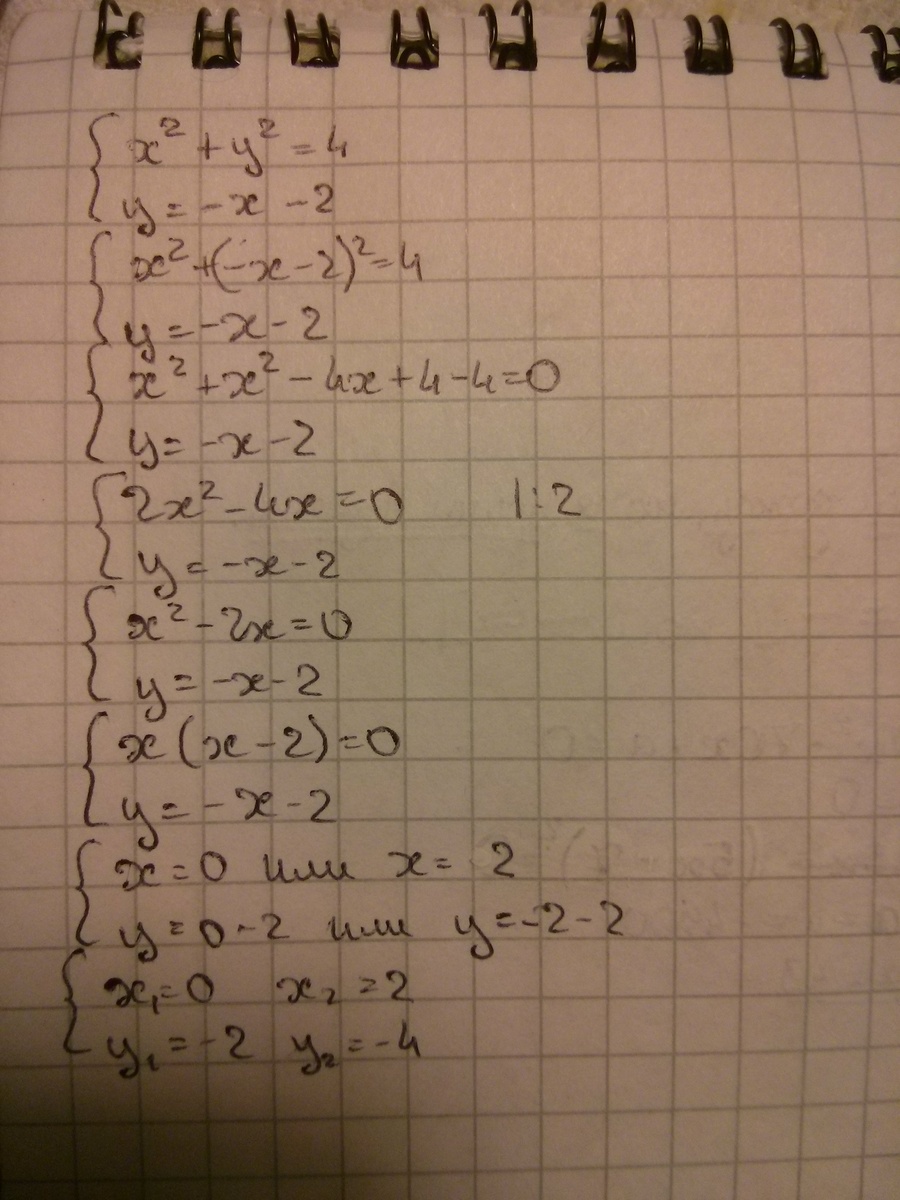 x² + y² = 4
y = -x - 2
x² + (-x - 2)² = 4
y = -x - 2
x² + x² - 4x + 4 - 4 = 0
y = -x - 2
2x² - 4x = 0 |:2
y = -x - 2
x² - 2x = 0
y = -x - 2
x (x - 2) = 0
y = -x - 2
x = 0 или x = 2
y = 0 - 2 или y = -2 - 2
x₁ = 0 x₂ = 2
y₁ = -2 y₂ = -4